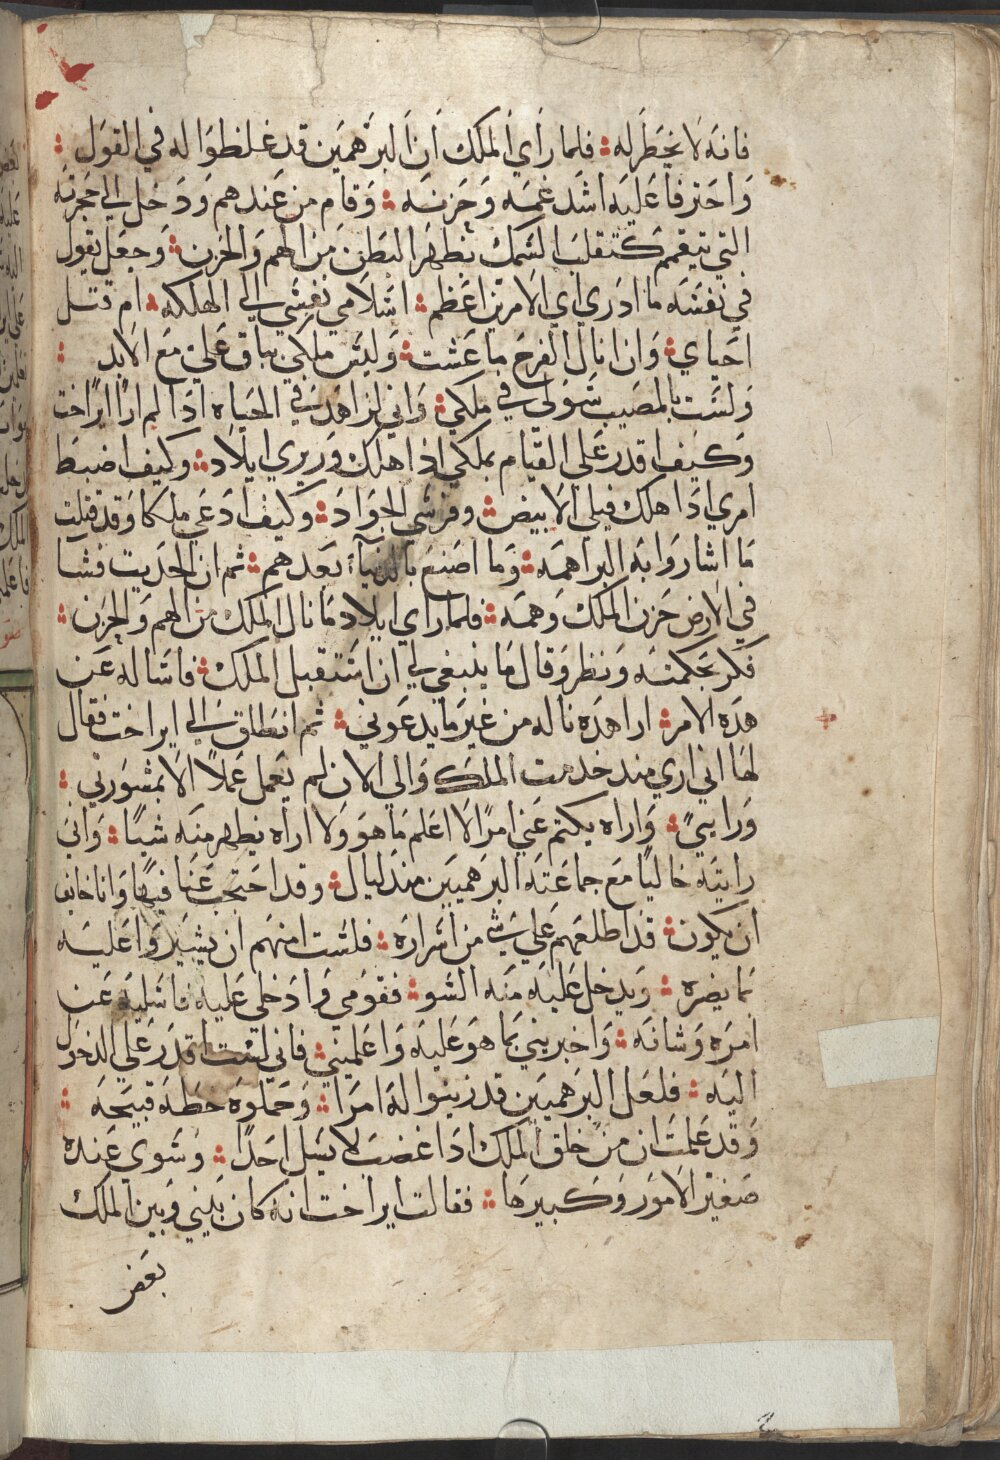 فانه لا يخطر له ؛ فلما رأي الملك أن البرهميين قد غلظوا له في القول ؛
واجترفا عليه اشد غمه وحزنه ؛ وقام من عندهم ودخل الي حجرته
التي يتغمم كتقلب السمك يظهر البطن من الهم والحزن ؛ وجعل يقول
في نفسه ما ادري اي الامرين اعظم ؛ اسلامي نفسي الي الهلكه ؛ ام قتل
احباي ؛ ولن انال الفرح ما عشت ؛ وليس ملكي بباق علي مع الابد ؛
ولست بالمصيب سولي في ملكي ؛ واني لزاهد في الحياه اذا لم ارا ايراخت
وكيف اقدر علي القيام بملكي اذا هلك وزيري ايلاد ؛ وكيف اضبط
امري اذا هلك فيلي الابيض ؛ وفرسي الجواد ؛ وكيف ادعي ملكا وقد قتلت
ما اشاروا به البراهمه ؛ وما اصنع بالدنيا بعدهم ؛ ثم ان الحديث فشا
في الارض حزن الملك وهمه ؛ فلما راي ايلاد ما نال الملك من الهم والحزن ؛
فكر بحكمته ونظر وقال ما ينبغي لي ان استقبل الملك ؛ فاساله عن
هذه الامر ؛ ارا هذه ناله من غير ما يدعوني ؛ ثم انطلق الي ايراخت فقال
لها اني اري منذ خدمت الملك والي الان لم يعمل عملا الا بمشورتي ؛
ورايي ؛ واراه يكتم عني امرا لا اعلم ما هو ولا اراه يظهر منه شيا ؛ واني
رايته خاليا مع جماعته البرهميين منذ ليال ؛ وقد احتجب عنا فيها وانا خايف
ان يكون ؛ قد اطلعهم علي شي من اسراره ؛ فلست امنهم ان يشيروا عليه
بما يضره ؛ ويدخل عليه منه السو ؛ فقومي فادخلي عليه فاسليه عن
امره وشانه ؛ واخبريني بما هو عليه واعلميني ؛ فاني لست اقدر علي الدخول
اليه ؛ فلعل البرهميين قد زينوا له امرا ؛ وحملوه خطه قبيحه ؛
وقد علمت ان من خلق الملك اذا غضب لا يسل احدا ؛ وسوي عنده
صغير الامور وكبيرها ؛ فقالت ايراخت انه كان بيني وبين الملك
بعض